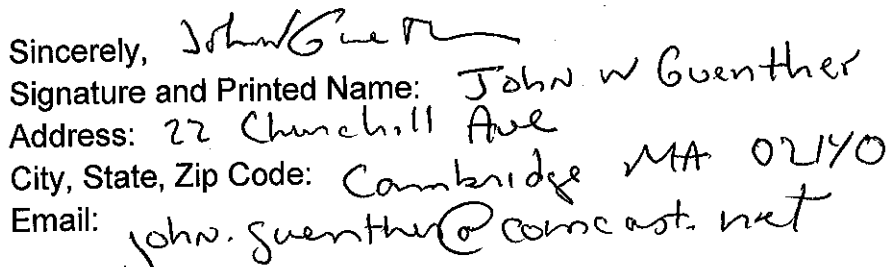 Sincerely, John W Guenther
Signature and Printed Name: John W Guenther
Address: 22 Churchill Ave
City, State, Zip Code: Cambridge MA 02140
Email: john.guenther@comcast.net